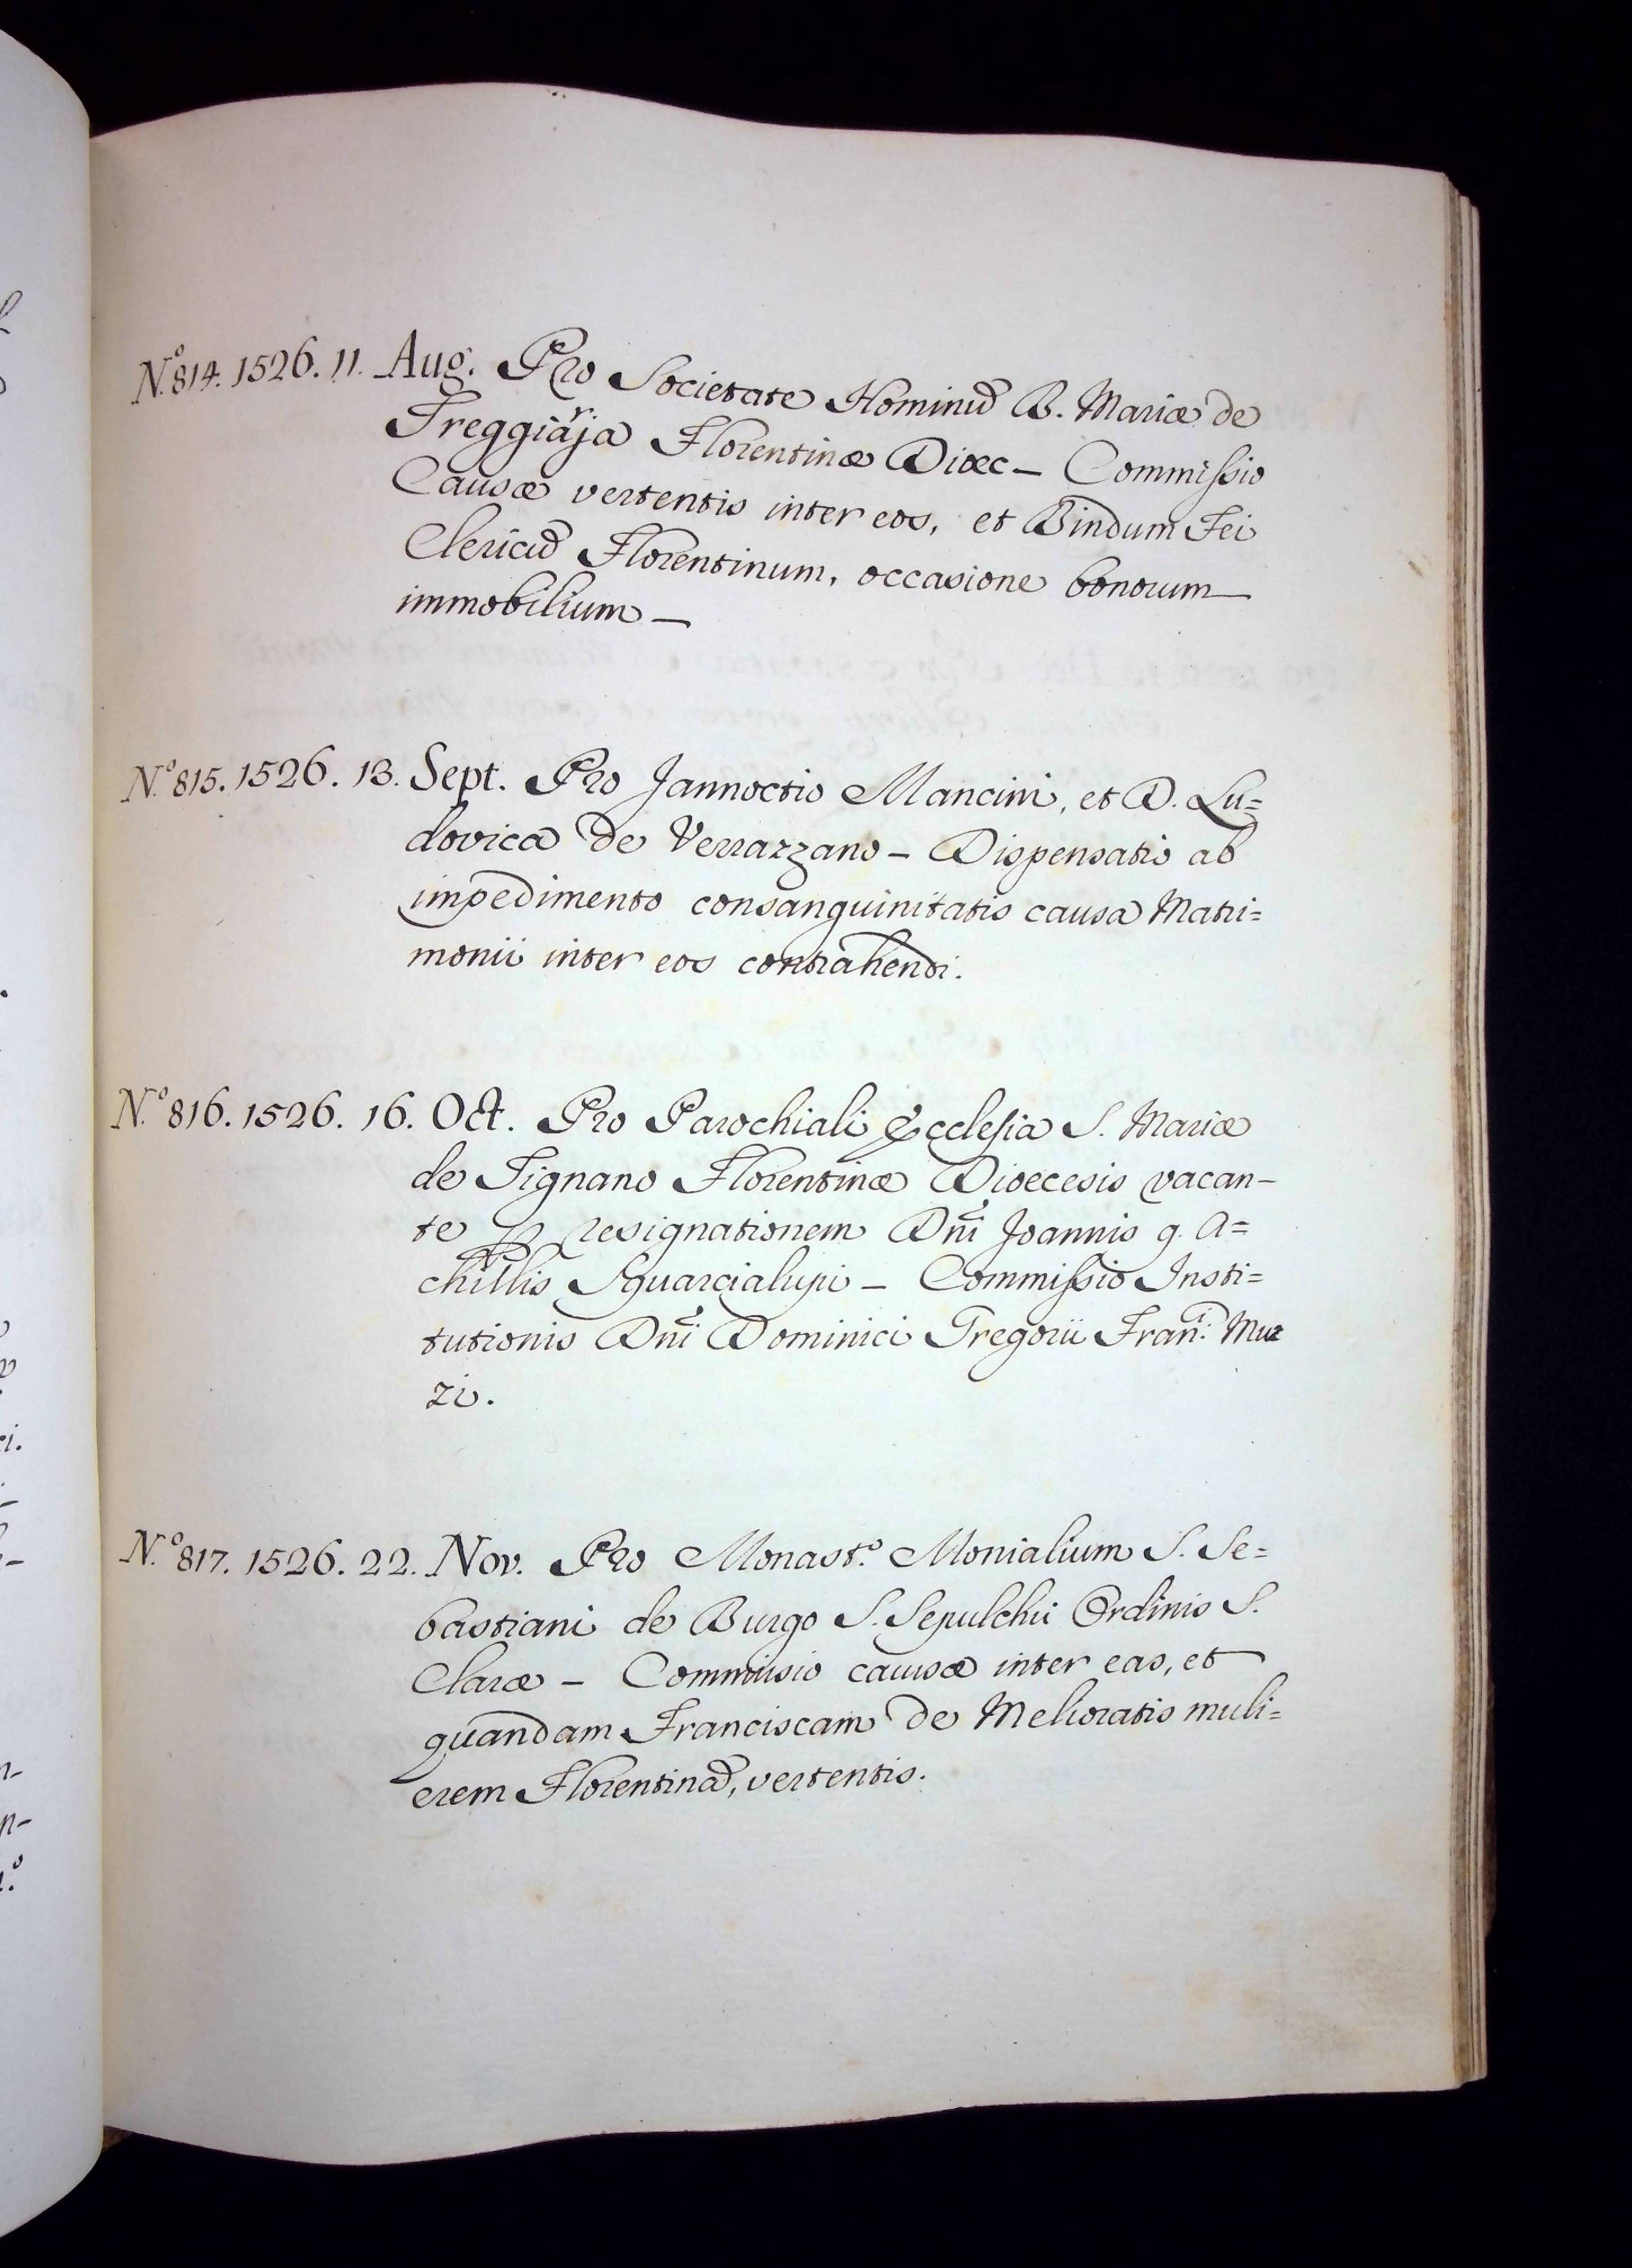 N.º 814. 1526. 11. Aug. Pro Societate Hominū B. Mariæ de
Treggiarja Florentinæ Diœc — Commissio
Causæ vertentis inter eos, et Bindum Fei
Clericū Florentinum, occasione bonorum
immobilium —
N.º 815. 1526. 13. Sept. Pro Jannoctio Mancini, et D. Lu=
dovica de Verrazzano — Dispensatio ab
impedimento consanguinitatis causa Matri=
monii inter eos contrahendi.
N.º 816. 1526. 16. Oct. Pro Parochiali Ecclesia S. Mariæ
de Tignano Florentinæ Dioecesis vacan-
te ꝑ resignationem Dñi Joannis q. A=
chillis Squarcialupi — Commissio Insti=
tutionis Dñi Dominici Gregorii Frañ: Muz
zi.
N.º 817. 1526. 22. Nov. Pro Monast.º Monialium S. Se=
bastiani de Burgo S. Sepulchri Ordinis S.
Claræ — Commissio causæ inter eas, et
quandam Franciscam de Melioratis muli=
erem Florentinā, vertentis.